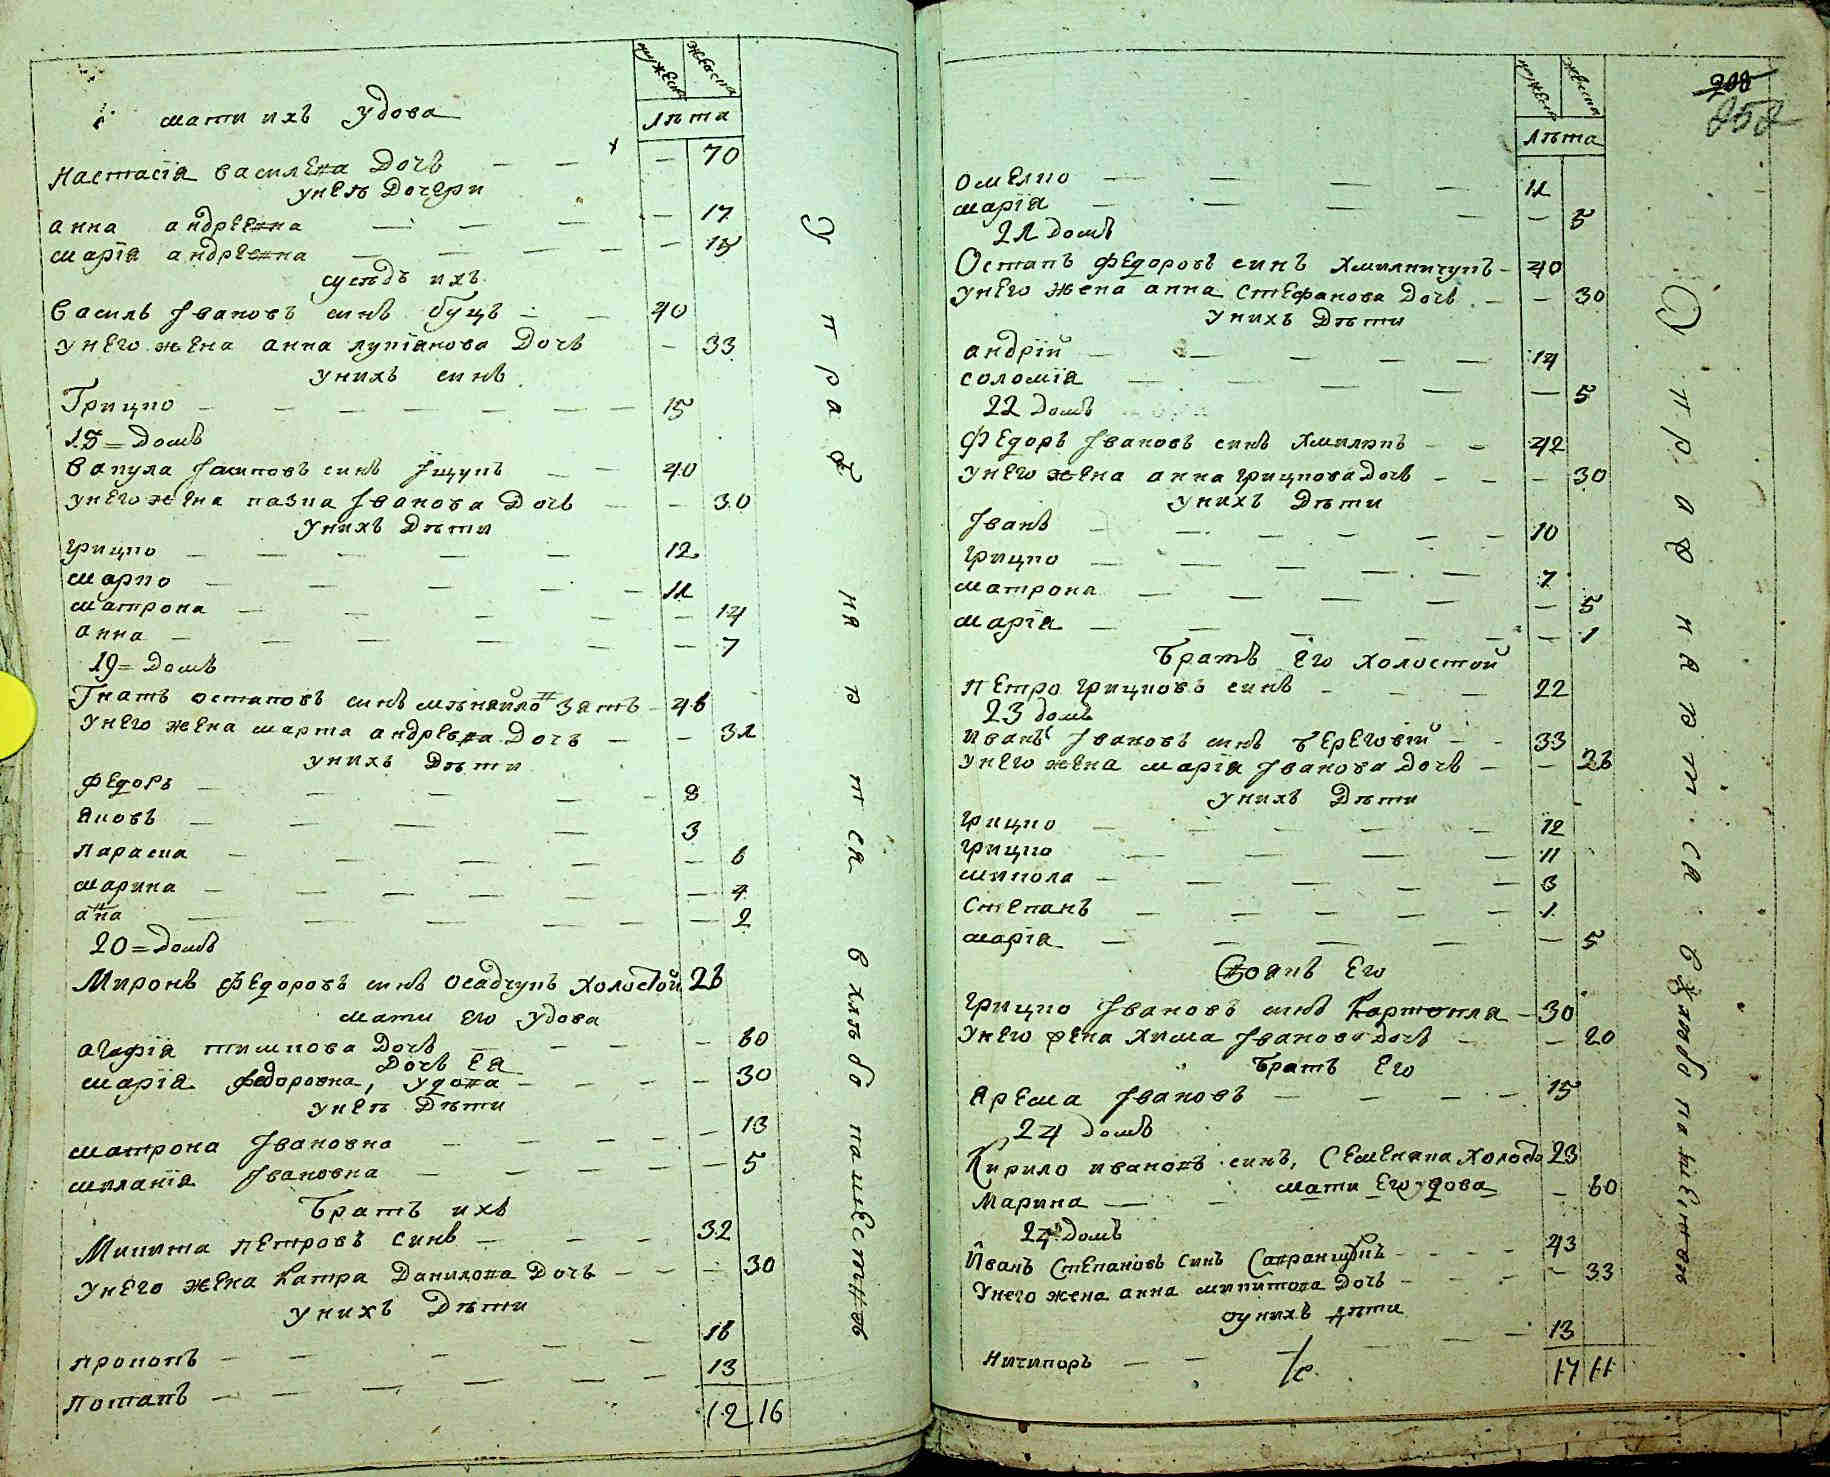 мужеска женска
лѣта
мати ихъ удова
Настасїя василева Дочь — — — 70
унеѣ Дочери
анна андреевна — — — — 17
марїя андреевна — — — — 15
сусѣдъ ихъ
Василь Івановъ синъ буцъ — — 40
унего жена анна лукїанова Дочь — 33
унихъ синъ
Грицко — — — — — — — 15
18 = домъ
Вакула Іакиповъ синъ Іщукъ — — 40
унего жена пазка Іванова Дочь — — 30
унихъ Дѣти
грицко — — — — — 12
марко — — — — — 11
матрона — — — — — 14
анна — — — — — — 7
19 = Домъ
Гнатъ остаповъ синъ зятъ — 46
унего жена марта андреева Дочъ — — 31
унихъ Дѣти
Федоръ — — — — — 8
яковъ — — — — — 3
параска — — — — — 6
марина — — — — — 4
анна — — — — — 2
20 = Домъ
Миронъ Федоровъ синъ осадчукъ холостой 26
мати его удова
агафїя тишкова Дочь — — — 60
Дочь ея
марїя федоровна, удова — — — — 30
унеѣ Дѣти
матрона Івановна — — — — — 13
миланїя Івановна — — — — — 5
Братъ ихъ
Микита петровъ синъ — — — 32
унего жена катра Данилова Дочь — — — 30
унихъ Дѣти
прокопъ — — — — 16
потапъ — — — — — 13
12 16
Управляются в хлѣбопашествѣ
мужеска женска
208
252
лѣта
Омелко — — — — 11
марїя — — — — — 5
21 домъ
Остапъ Федоровъ синъ хмилничукъ — 40
унего жена анна Стефанова Дочь — — 30
унихъ Дѣти
андрїй — — — — — 14
соломїя — — — — 5
22 домъ
Федоръ Івановъ синъ — — 42
унего жена анна грицкова Дочь — — — 30
унихъ Дѣти
Іванъ — — — — — — 10
грицко — — — — — 7
матрона — — — — — 5
марїя — — — — — — 1
Братъ его холостой
петро грицковъ синъ — — — 22
23 домъ
иванъ Івановъ синъ береговїй — — 33
унего жена марїя Іванова Дочь — — 26
унихъ Дѣти
грицко — — — — — 12
грицко — — — — 11
микола — — — — — 3
Степанъ — — — — — 1
марїя — — — — — 5
Своякъ Его
грицко Івановъ синъ — 30
унего жена хима Іванова Дочь — — 20
братъ Его
ярема Івановъ — — — — 15
24 домъ
Кирило ивановъ синъ, Семеняка холостъ 23
мати его удова
Марина — — — 60
24 Домъ
Иванъ Степановъ синъ — — — 43
Унего жена анна микитова Дочь — — — — 33
оунихъ дѣти
Ничипоръ — — — — — 13
17 11
Управляются в хлѣбопашествѣ